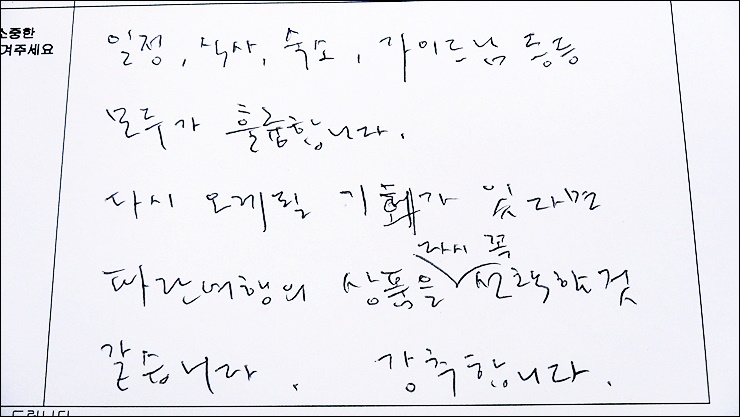 소중한
겨주세요
일정, 식사, 숙소, 가이드님 등등
모두가 훌륭합니다.
다시 오게될 기회가 있다면
다시 꼭
파란여행의 상품을 선택할 것
같습니다. 강추합니다.
드립니다